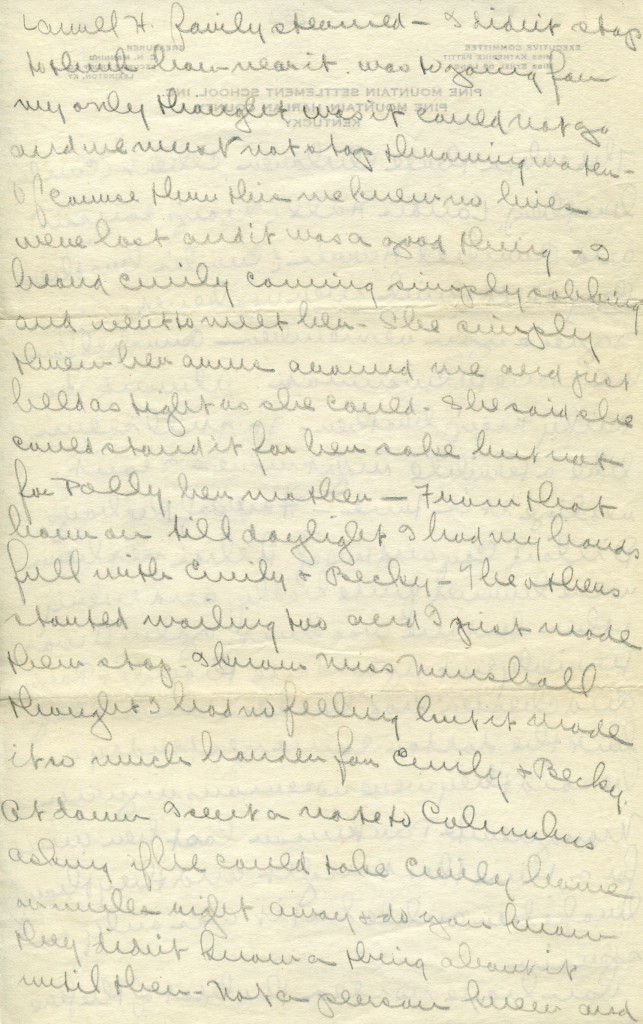 Laurel H. family steamed – I didn't stop
to think how near it was to going for
my only thought was it could not go
and we must not stop throwing water –
Of course thru this we knew no lives
were lost and it was a good thing – I
heard Emily coming simply sobbing
and went to meet her – She simply
threw her arms around me and just
held as tight as she could – She said she
could stand it for her sake but not
for Polly, her mother – From that
hour on till daylight I had my hands
full with Emily + Becky – The others
started wailing too and I just made
them stop. I know Miss
thought I had no feeling but it made
it so much harder for Emily + Becky.
At dawn I sent a note to Columbus
asking if he could take Emily home
miles right away + do you know
they didn't know a thing about it
until then – Not a person knew and
EXECUTIVE COMMITTEE
MISS KATHERINE PETTIT
PINE MOUNTAIN SETTLEMENT SCHOOL, INC.
PINE MOUNTAIN, HARLAN COUNTY
KENTUCKY
TREASURER
LEXINGTON, KY.